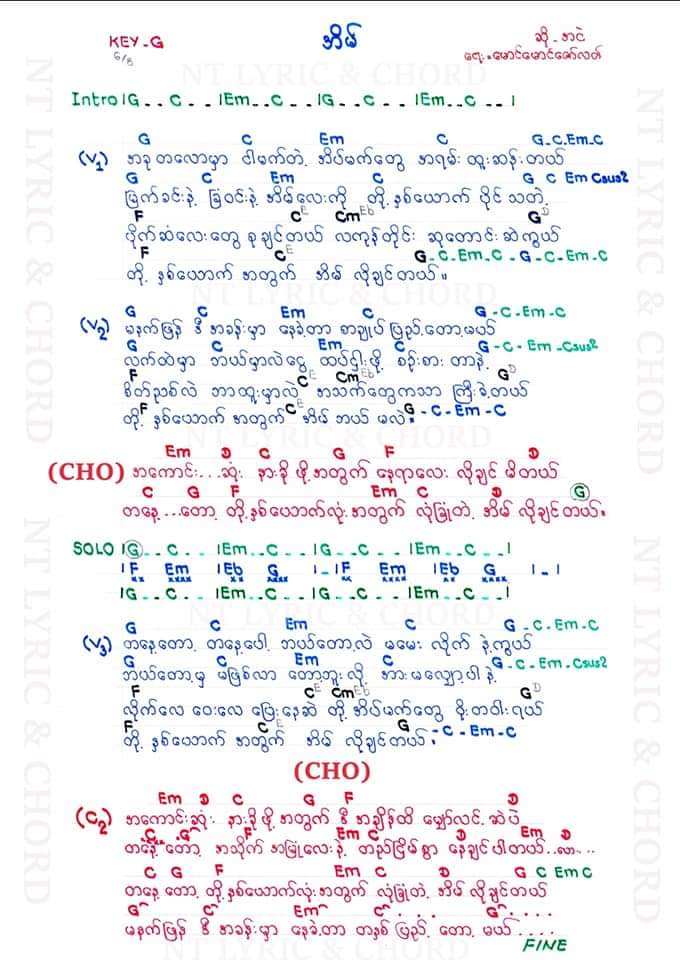 KEY-G
6/8
အိမ်
ဆို - အငဲ
ရေး - မောင်မောင်ဇော်လတ်
NT LYRIC & CHORD
Intro |G . . C . . |Em . . C . . |G . . C . . |Em . . C . . |
G C Em C G-C.Em-C
(V1) အခုတလောမှာ ငါမက်တဲ့ အိပ်မက်တွေ အရမ်းထူးဆန်းတယ်
G C Em C G C Em Csus2
မြက်ခင်းနဲ့ ခြံဝင်းနဲ့ အိမ်လေးကို တို့နှစ်ယောက် ပိုင်သတဲ့
F C E Cm Eb G D
ပိုက်ဆံလေးတွေ စုချင်တယ် လကုန်တိုင်း ဆုတောင်းဆဲကွယ်
F C E G-C-Em-C-G-C-Em-C
တို့နှစ်ယောက် အတွက် အိမ် လိုချင်တယ်။
G C Em C G-C-Em-C
(V2) မနက်ဖြန် ဒီအခန်းမှာ နေခဲ့တာ စာချုပ်ပြည့်တော့မယ်
G C Em C G-C-Em-Csus2
လက်ထဲမှာ ဘယ်မှာလဲငွေ ထပ်ငှါးဖို့ စဉ်းစားတာနဲ့
F C E Cm Eb G D
စိတ်ညစ်လဲ ဘာထူးမှာလဲ အသက်တွေကသာ ကြီးခဲ့တယ်
F C E G-C-Em-C
တို့နှစ်ယောက် အတွက် အိမ် ဘယ်မလဲ
Em D C G F D
(CHO) အကောင်း...ဆုံး နားခိုဖို့အတွက် နေရာလေး လိုချင်မိတယ်
C G F Em C D G
တနေ့...တော့ တို့နှစ်ယောက်လုံးအတွက် လုံခြုံတဲ့ အိမ်လိုချင်တယ်။
SOLO |G . . C . . |Em . . C . . |G . . C . . |Em . . C . . |
|F Em |Eb G |-|F Em |Eb G |-|
|G . . C . . |Em . . C . . |G . . C . . |Em . . C . . |
G C Em C G-C-Em-C
(V3) တနေ့တော့ တနေ့ပေါ့ ဘယ်တော့လဲ မမေးလိုက်နဲ့ကွယ်
G C Em C G-C-Em-Csus2
ဘယ်တော့မှ မဖြစ်လာတော့ဘူးလို့ အားမလျှော့ပါနဲ့
F C E Cm Eb G D
လိုက်လေ ဝေးလေ ပြေးနေဆဲ တို့အိပ်မက်တွေ စိုးတဝါးရယ်
F C E G-C-Em-C
တို့နှစ်ယောက် အတွက် အိမ် လိုချင်တယ်။
(CHO)
Em D C G F D
(C2) အကောင်းဆုံး နားခိုဖို့အတွက် ဒီအချိန်ထိ မျှော်လင့်ဆဲပဲ
C G F Em C D Em D
တနေ့တော့ အသိုက်အမြုံလေးနဲ့ တည်ငြိမ်စွာ နေချင်ပါတယ်..
C G F Em C D G C Em C
တနေ့တော့ တို့နှစ်ယောက်လုံးအတွက် လုံခြုံတဲ့ အိမ်လိုချင်တယ်
G C Em C G
မနက်ဖြန် ဒီအခန်းမှာ နေခဲ့တာ တနှစ်ပြည့်တော့မယ်....
FINE